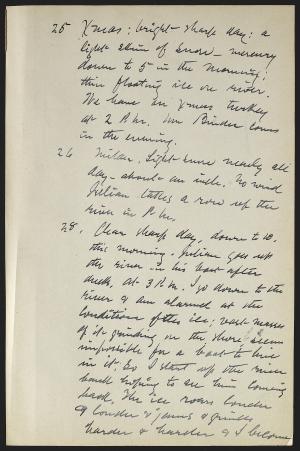 25 Xmas; bright sharp day; a
light skim of snow – mercury
down to 5° in the morning;
thin floating ice on river.
We have our Xmas turkey
at 2 P.M. Mr Binder comes
in the evening.
26 Milder, light snow nearly all
day – about an inch. No wind
Julian takes a row up the
river in P.M.
28. Clear sharp day, down to 10.
this morning. Julian goes up
the river in his boat after
ducks, at 3 P.M. I go down to the
river & am alarmed at the
condition of the ice; vast masses
of it grinding on the shore; seems
impossible for a boat to live
in it. So I start up the river
bank hoping to see him coming
back. The ice roars louder
& louder & jams & grinds
harder & harder & I become